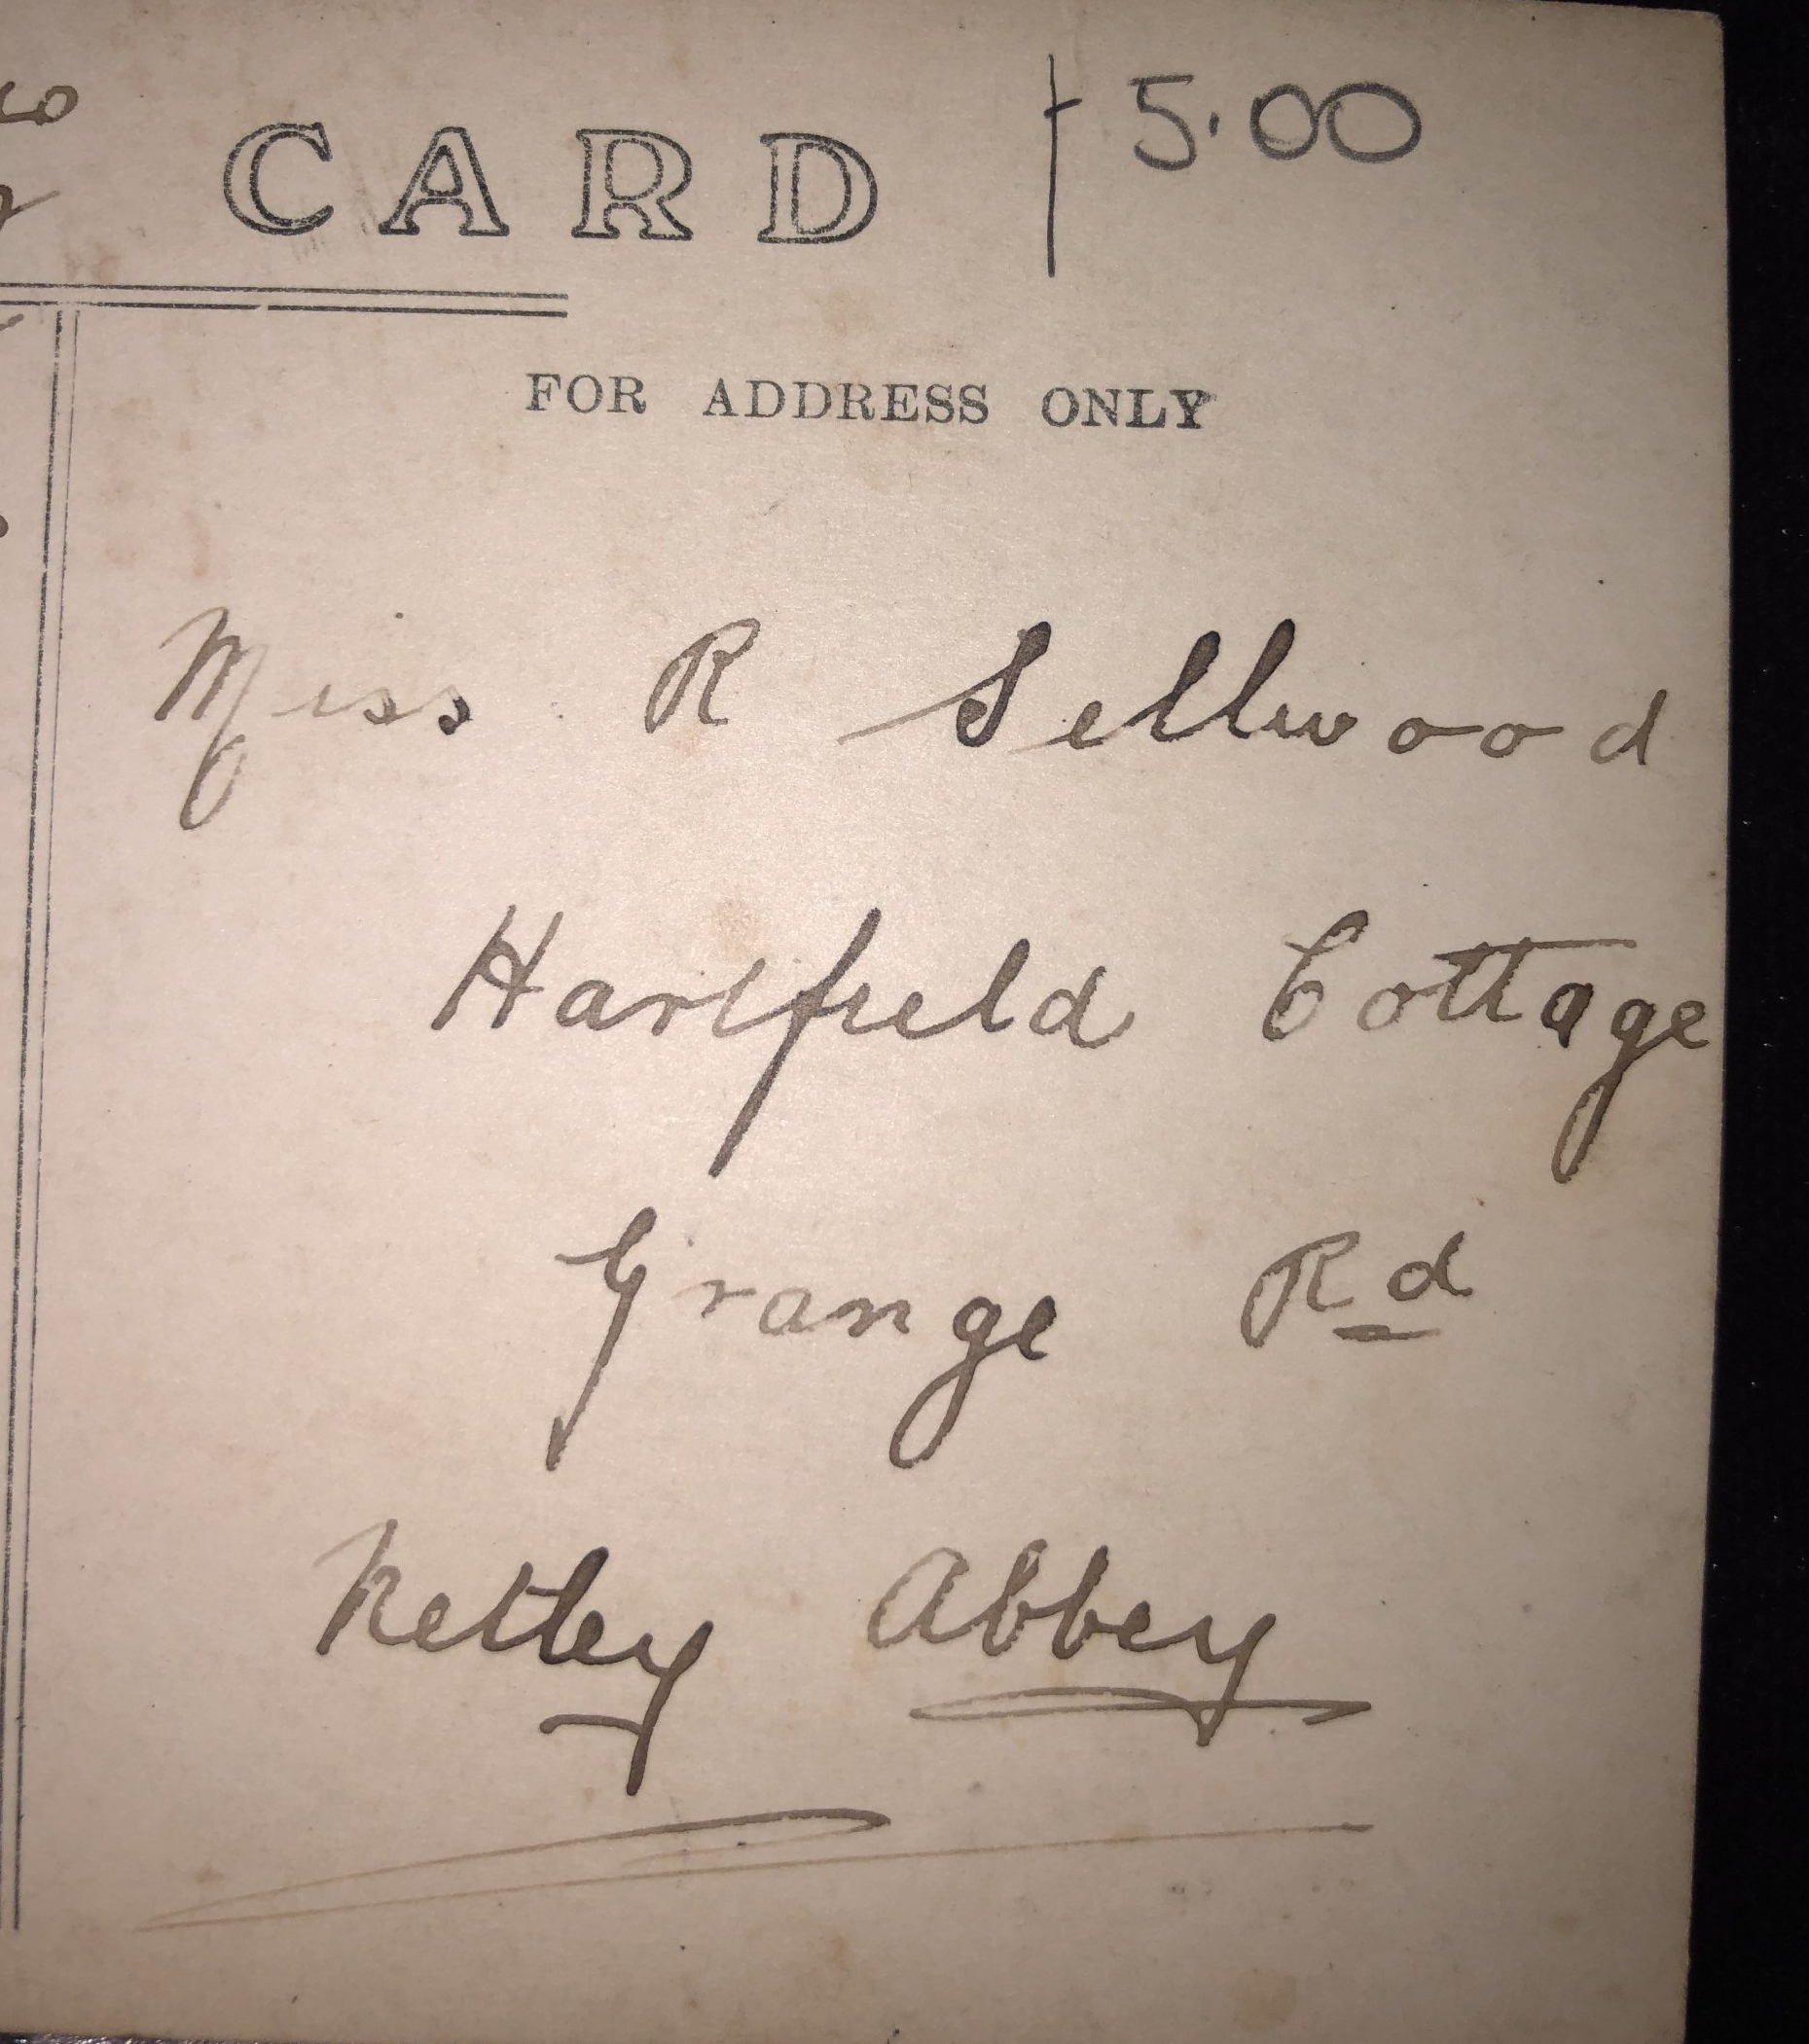 CARD
5.00
FOR ADDRESS ONLY
Miss R Sellwood
Hartfield Cottage
Grange Rd
Netley Abbey